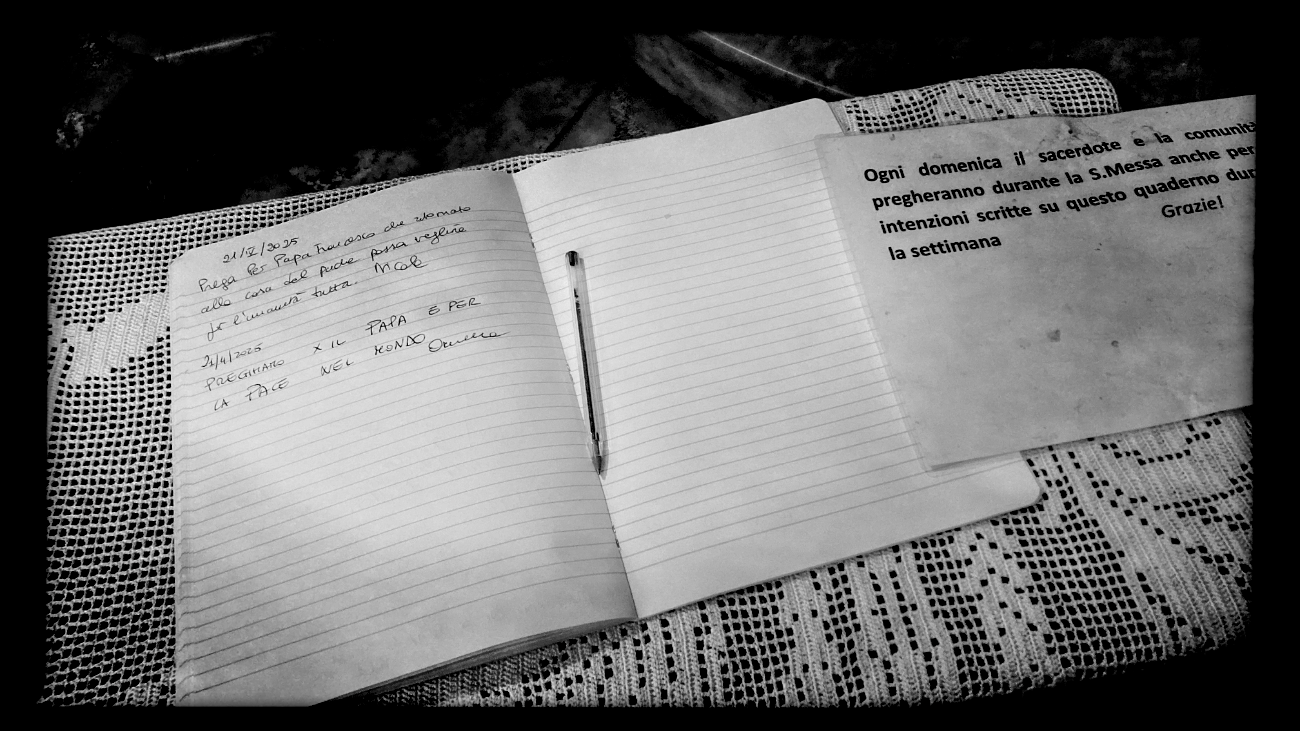 21/IV/2025
Prega per Papa Francesco che ritornato
alla casa del padre possa vegliare
per l'umanità tutta.
21/4/2025
PREGHIAMO X IL PAPA E PER
LA PACE NEL MONDO Ornella
Ogni domenica il sacerdote e la comunità
pregheranno durante la S.Messa anche per
intenzioni scritte su questo quaderno dur
la settimana
Grazie!